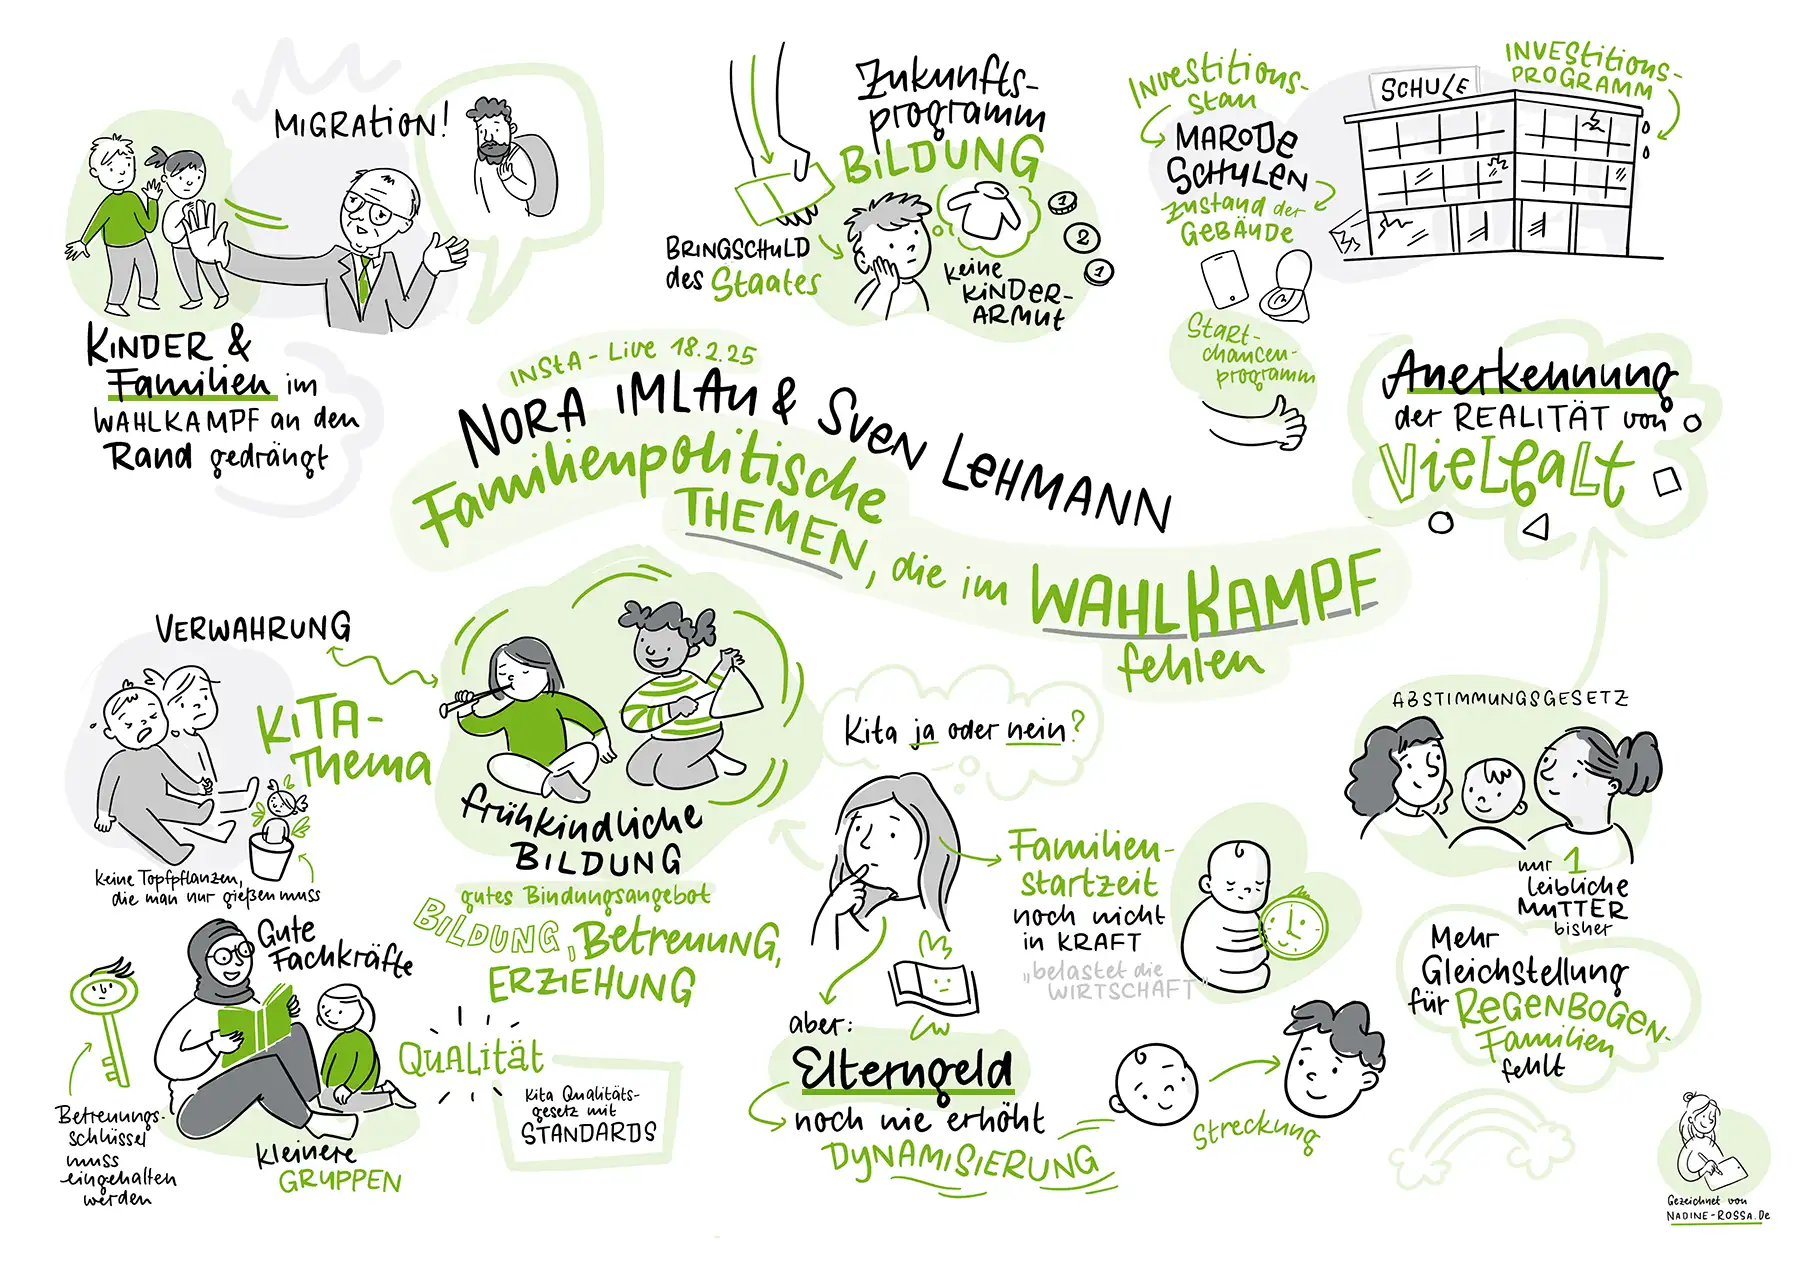 MIGRATION!
KINDER &
Familien im
WAHLKAMPF an den
Rand gedrängt
Zukunfts-
programm
BILDUNG
BRINGSCHULD
des Staates
keine
KINDER-
ARMUT
1
2
1
Investitions-
stau
MARODE
SCHULEN
Zustand der
GEBÄUDE
SCHULE
INVESTITIONS-
PROGRAMM
Start-
chancen-
programm
INSTA-Live 18.2.25
NORA IMLAU & SVEN LEHMANN
Familienpolitische
THEMEN, die im WAHLKAMPF
fehlen
Anerkennung
der REALITÄT von
Vielfalt
VERWAHRUNG
KITA-
Thema
keine Topfpflanzen,
die man nur gießen muss
frühkindliche
BILDUNG
gutes Bindungsangebot
BILDUNG, Betreuung,
ERZIEHUNG
Gute
Fachkräfte
Betreuungs-
schlüssel
muss
eingehalten
werden
kleinere
GRUPPEN
QUALITÄT
Kita Qualitäts-
gesetz mit
STANDARDS
Kita ja oder nein?
Familien-
startzeit
noch nicht
in KRAFT
„belastet die
WIRTSCHAFT"
aber:
Elterngeld
noch nie erhöht
DYNAMISIERUNG
Streckung
ABSTIMMUNGSGESETZ
nur 1
leibliche
MUTTER
bisher
Mehr
Gleichstellung
für REGENBOGEN-
Familien
fehlt
Gezeichnet von
NADINE-ROSSA.De